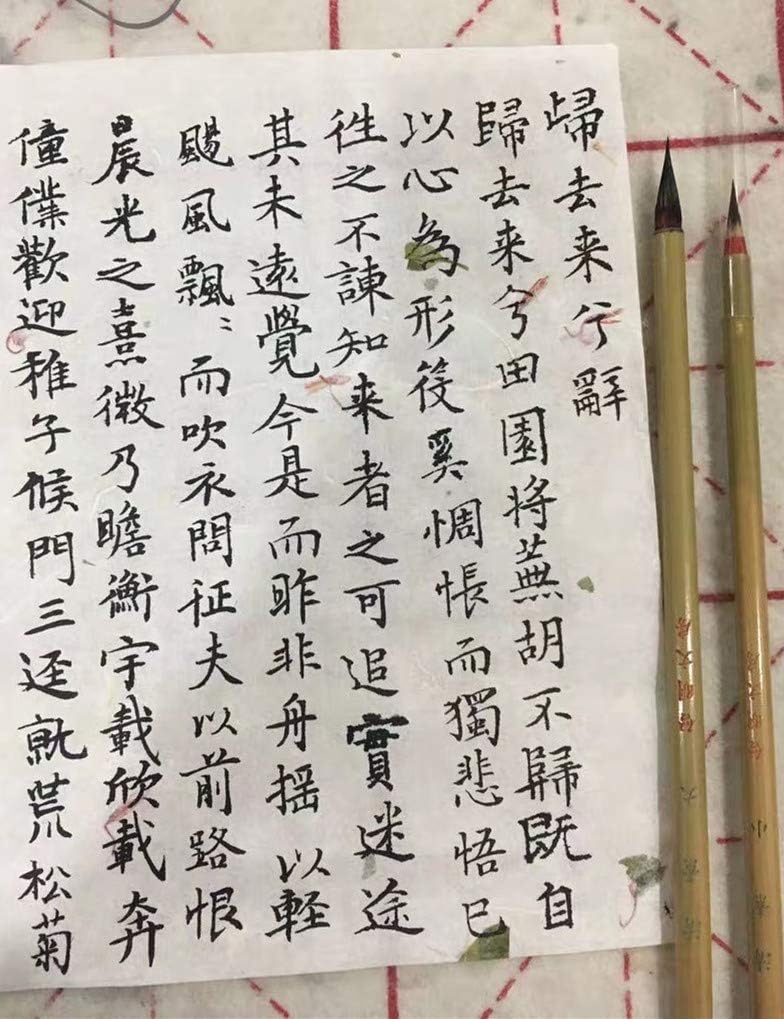 歸去来兮辭
歸去来兮田園將蕪胡不歸既自
以心為形役奚惆悵而獨悲悟已
徃之不諫知来者之可追實迷途
其未遠覺今是而昨非舟揺以輕
颺風飄〻而吹衣問征夫以前路恨
晨光之熹微乃瞻衡宇載欣載奔
僮僕歡迎稚子候門三逕就荒松菊